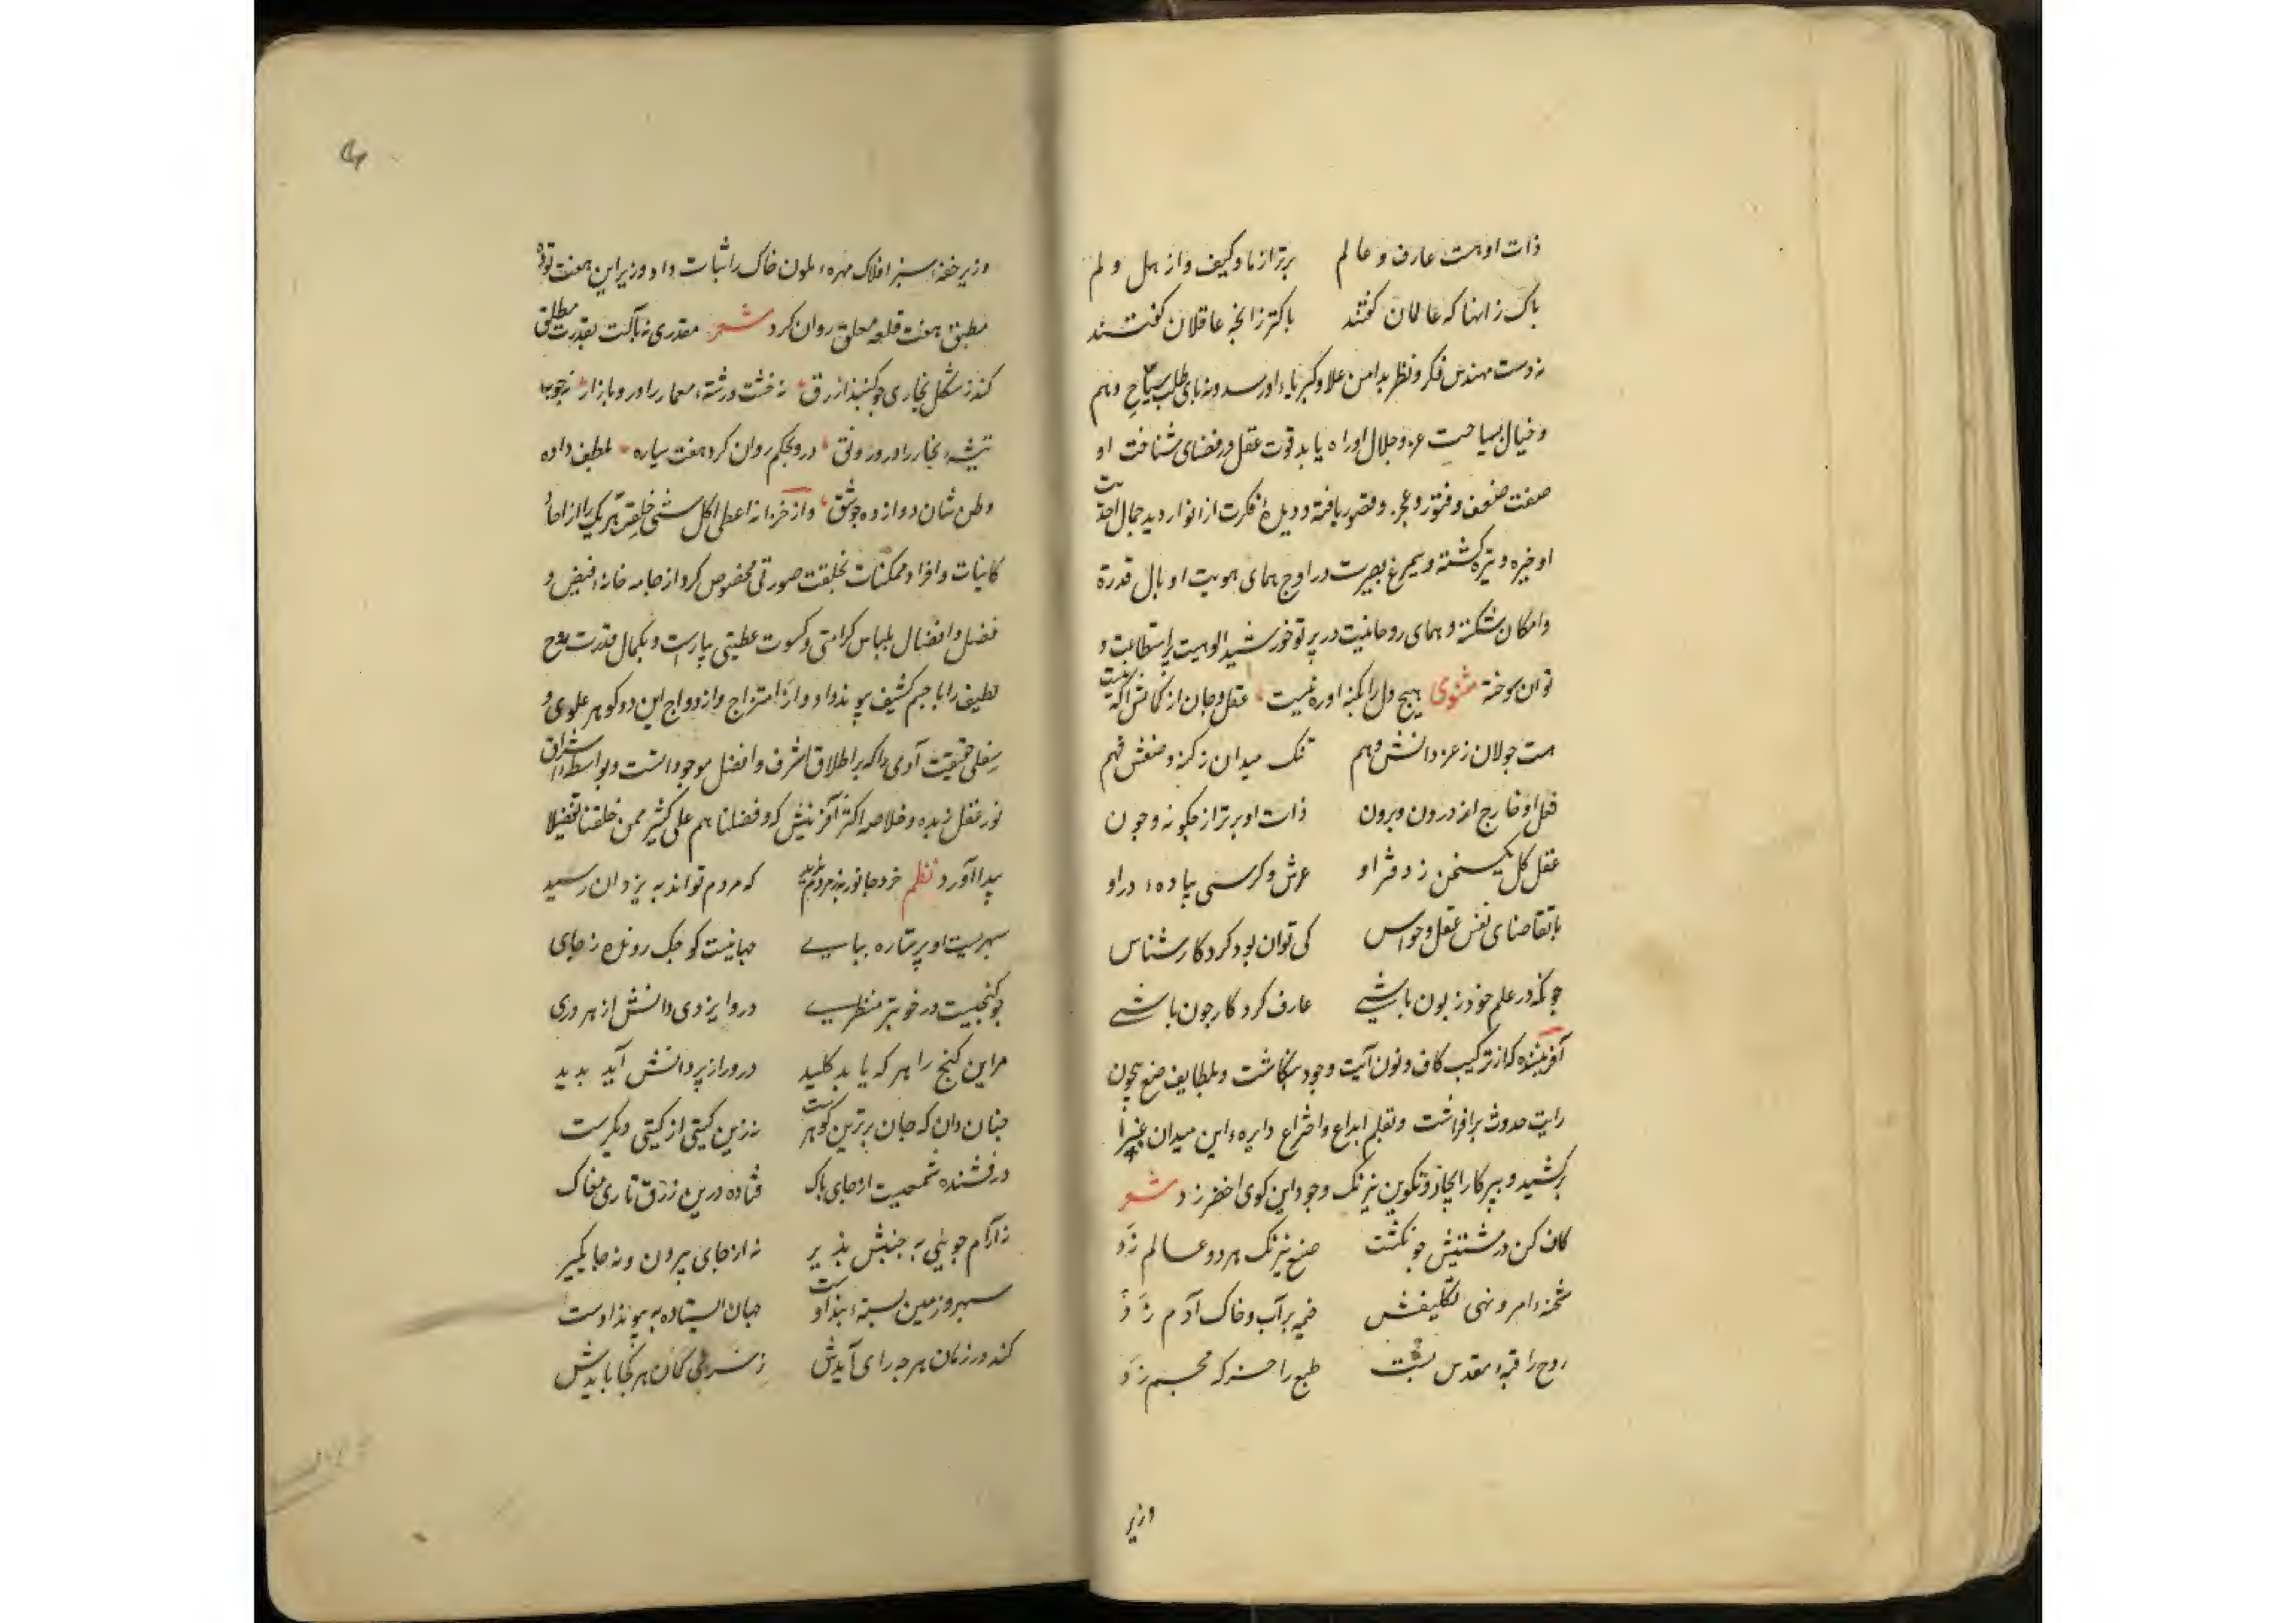 ذات او هست عارف و عالم برتر از ما و کیف و از هل و لم
پاک ز اینها که عالمان گفتند پاکتر ز انچه عاقلان گفتند
نه دست مهندس فکر و نظر بدامن علا و کبریاء او رسد و نه پای طلب سیاح وهم
و خیال بسیاحت عز و جلال او راه یابد قوت عقل در فضای شناخت او
صفت ضعف و فتور و عجز و قصور یافته و دیدهٔ فکرت از انوار دید جمال احدیت
او خیره و تیره کشته و سیمرغ بصیرت در اوج همای هویت او بال قدرة
و امکان شکسته و همای روحانیت در پرتو خورشید الوهیت پر استطاعت و
توان سوخته مثنوی هیچ دل را بکنه او ره نیست عقل و جان از کمالش اکه نیست
هست جولان ز عز دانش وهم تنک میدان ز کنه وصفش فهم
فعل او خارج از درون و برون ذات او برتر از چکونه و چون
عقل کل یکسخن ز دفتر او عرش و کرسی پیاده در او
با تقاضای نفس عقل و حواس کی توان بود کردکار شناس
چونکه در علم خود زبون باشی عارف کردکار چون باشی
آفریننده که از ترکیب کاف و نون آیت وجود بنکاشت و بلطایف صنع بیچون
رایت حدوث برافراشت و بقلم ابداع و اختراع دایره این میدان غبرا
برکشید و بپرکار ایجاد و تکوین نیرنک وجود این کوی اخضر زد شعر
کاف کن در مشیتش چو نکشت صنع نیرنک هر دو عالم زد
شحنه امر و نهی تکلیفش خیمه بر آب و خاک آدم زد
روح را قبه مقدس بست طبع را خرکه مجسم زد
وزیر
وزیر خفه سبز افلاک مهره ملون خاک را ثبات داد و زیر این هفت توده
مطبق هفت قلعه معلق روان کرد شعر مقدری نه بآلت بقدرت مطلق
کند ز شکل بخاری چو کنبد ازرق نه خشت و رشته معمار را درو بازار نه چوب
تیشه نجار را درو رونق درو بحکم روان کرد هفت سیاره بلطف داده
وطن شان دوازده جوشق و از خزانه اعطی کل شئ خلقه هر یک را از احاد
کاینات و افراد ممکنات بخلقت صورتی مخصوص کرد از جامه خانه فیض و
فضل و افضال بلباس کرامتی و کسوت عطیتی بیاراست و بکمال قدرت روح
لطیف را با جسم کثیف پیوند داد و از امتزاج و ازدواج این دو کوهر علوی و
سفلی حقیقت آدمی را که بر اطلاق اشرف و افضل موجوداتست و بواسطه اشراق
نور عقل زبده و خلاصه اکثر آفرینش که و فضلناهم علی کثیر ممن خلقنا تفضیلا
پیدا آورد نظم خرد جانور به ز مردم ندید که مردم تواند به یزدان رسید
سپهریست او پر ستاره بپای جهانیست کوچک رونده ز جای
چو کنجیست در خوبتر منظری درو ایزدی دانش از هر دری
مر این کنج را هر که یابد کلید در راز پر دانش آید پدید
چنان دان که جان برترین کوهرست نه زین کیتی از کیتی دیکرست
درفشنده شمعیست از جای پاک فتاده درین ژرف تاری مغاک
نه آرام جوینی نه جنبش پذیر نه از جای بیرون و نه جا یکیر
سپهر و زمین بسته بند اوست جهان ایستاده به پیوند اوست
کند در زمان هر چه رای آیدش کمان هر کجا بایدش